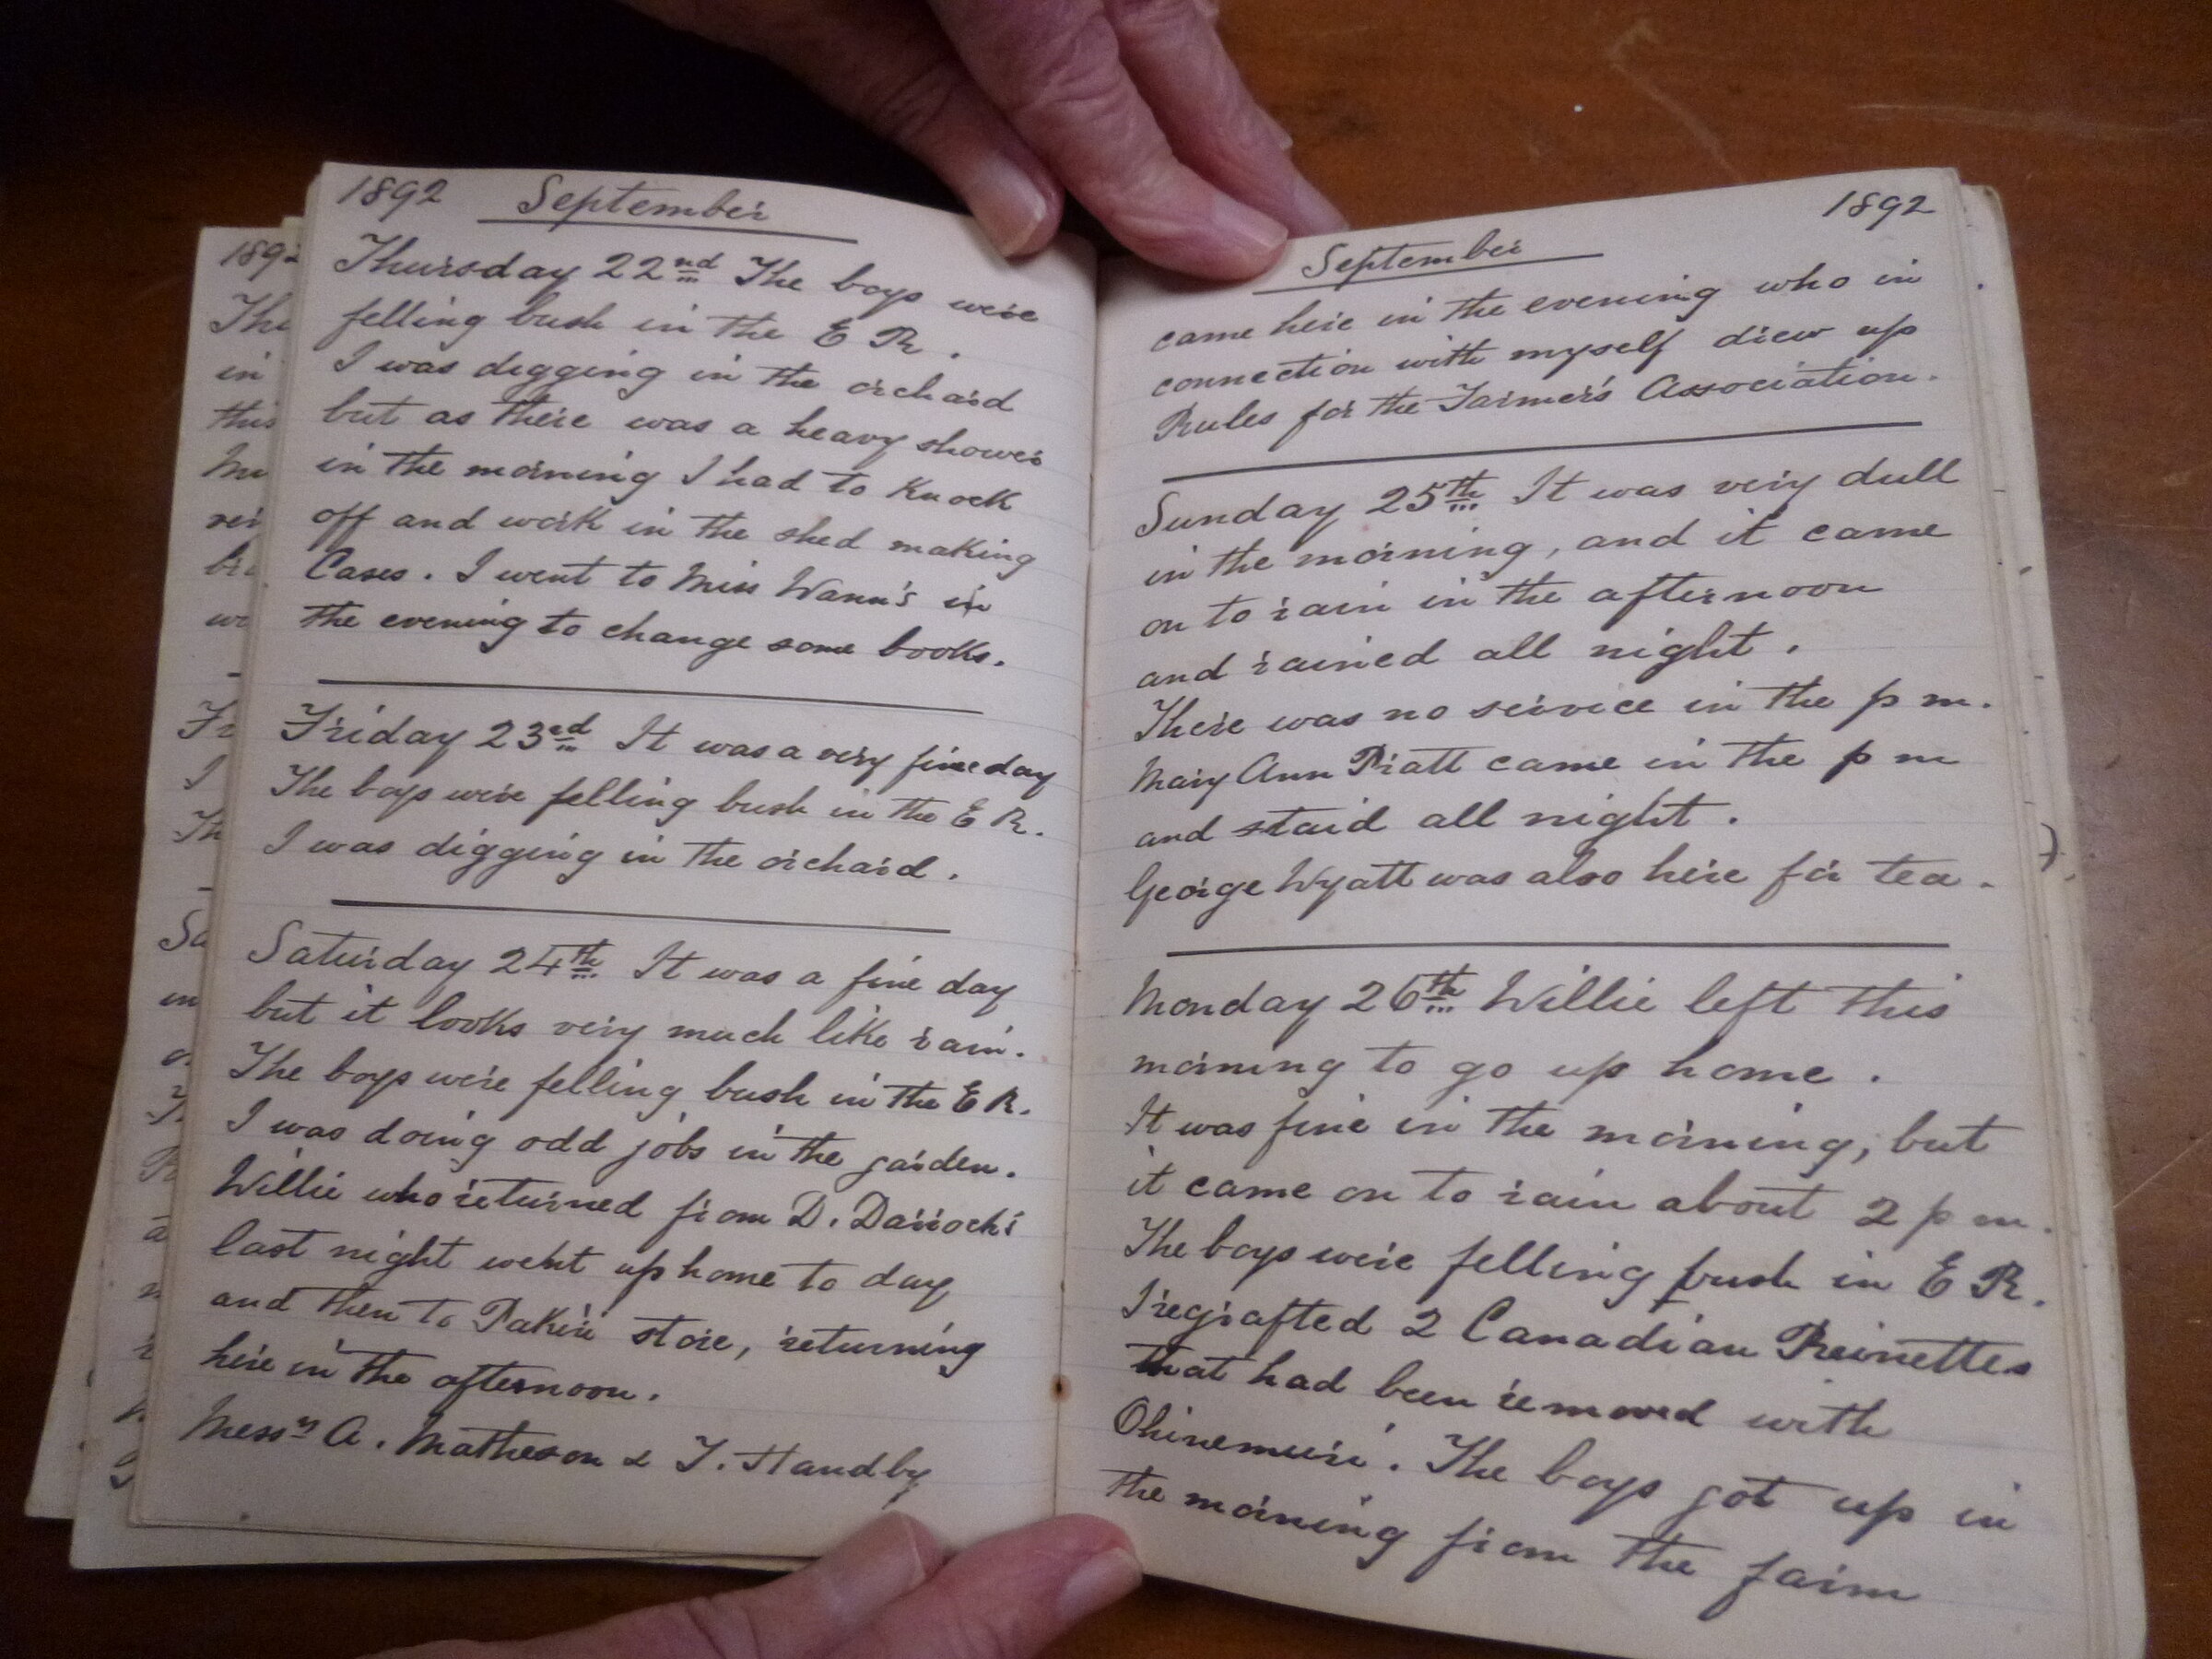 1892 September
Thursday 22nd The boys were
felling bush in the E R.
I was digging in the orchard
but as there was a heavy shower
in the morning I had to Knock
off and work in the shed making
Cases. I went to Miss Wann's in
the evening to change some books.
Friday 23rd It was a very fine day
The boys were felling bush in the E R.
I was digging in the orchard.
Saturday 24th It was a fine day
but it looks very much like rain.
The boys were felling bush in the E R.
I was doing odd jobs in the garden.
Willie who returned from D. Darroch's
last night went up home to day
and then to Pakiri store, returning
here in the afternoon.
Messrs A. Matheson & T. Handby
1892
September
came here in the evening who in
connection with myself drew up
Rules for the Farmer's Association.
Sunday 25th It was very dull
in the morning, and it came
on to rain in the afternoon
and rained all night.
There was no service in the p m.
Mary Ann Pratt came in the p m
and staid all night.
George Wyatt was also here for tea.
Monday 26th Willie left this
morning to go up home.
It was fine in the morning, but
it came on to rain about 2 p m.
The boys were felling bush in E R.
I regrafted 2 Canadian Reinettes
that had been removed with
Ohinemuri. The boys got up in
the morning from the farm